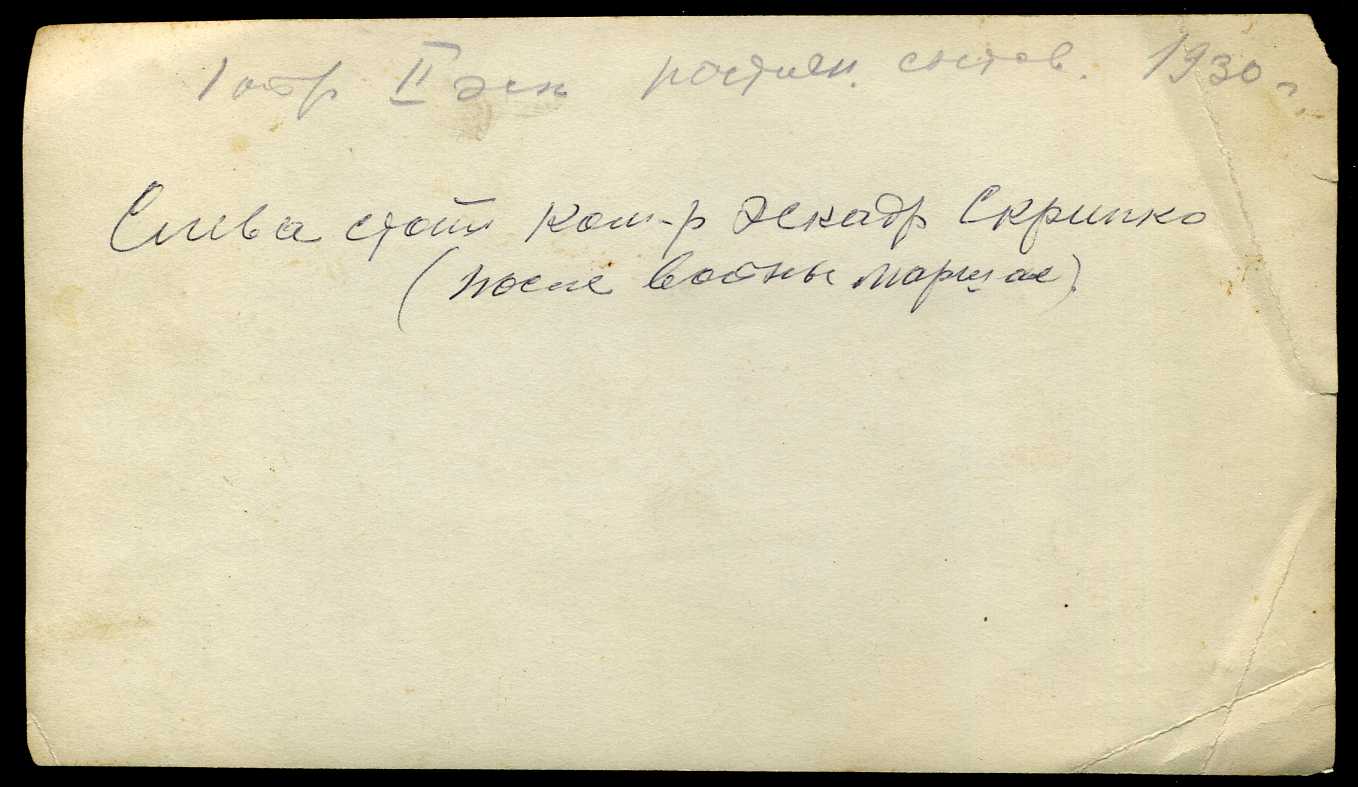 1 отр II эск постоян. состав. 1930 г.
Слева стоит ком-р эскадр Скрипко
(после войны маршал).